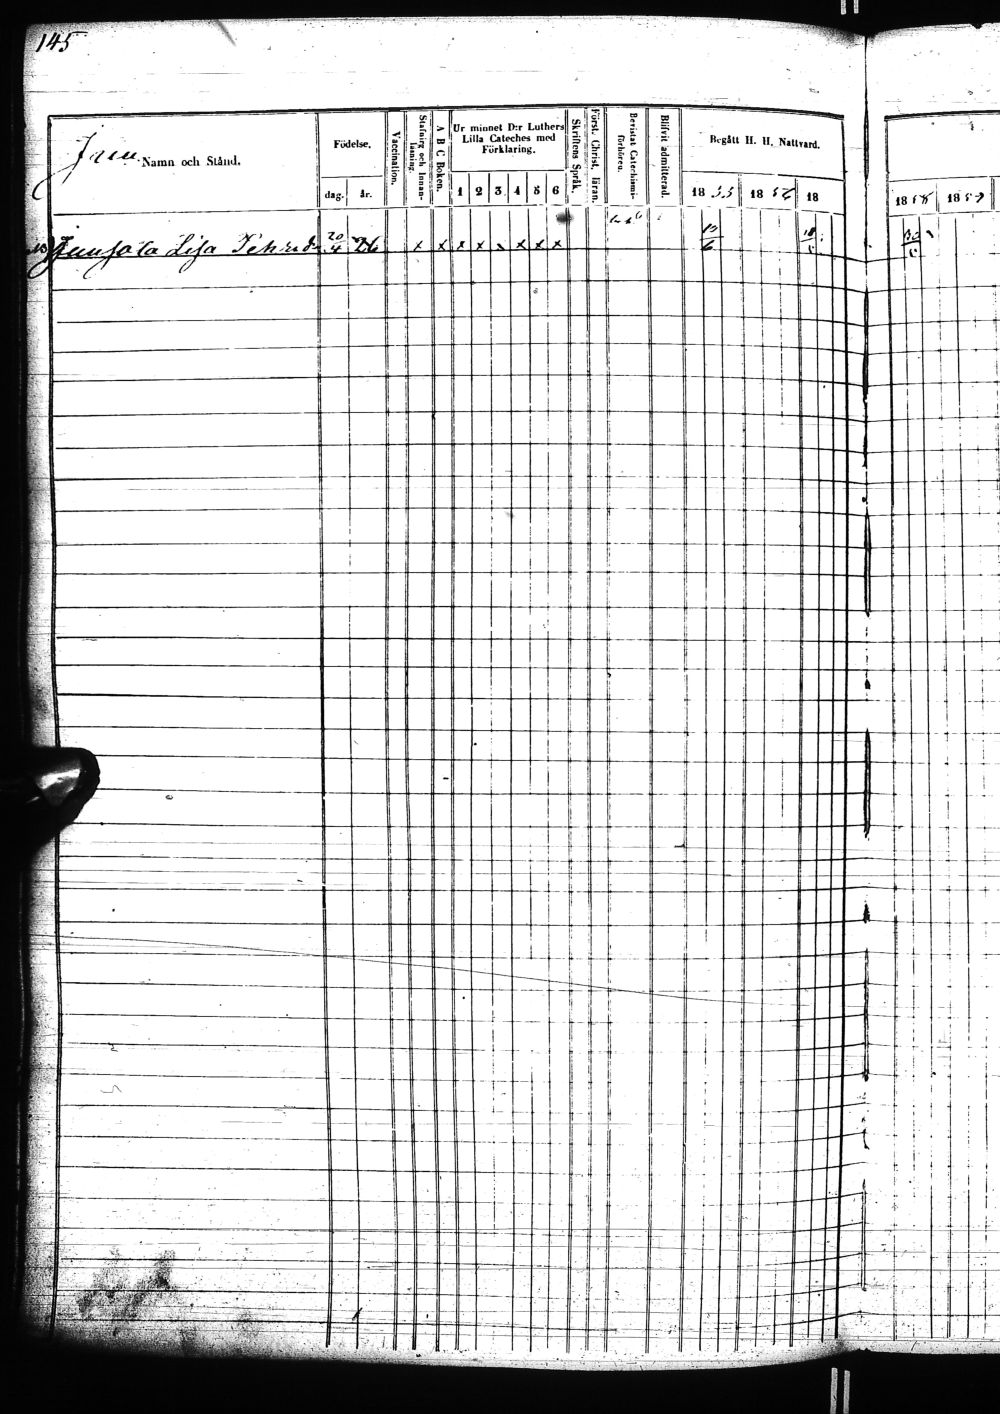 145
Namn och Stånd.
Födelse.
dag.
år.
Vaccination.
Stafning och Innan-läsning.
A B C Boken.
Ur minnet D:r Luthers
Lilla Cateches med
Förklaring.
1 2 3 4 5 6
Skriftens Språk.
Först. Christ. läran.
Bevistat Catechismi-förhören.
Blifvit admitterad.
Begått H. H. Nattvard.
18 55
18 56
18
18 58
18 59
Lisa
20/4 26
x x x x x x x